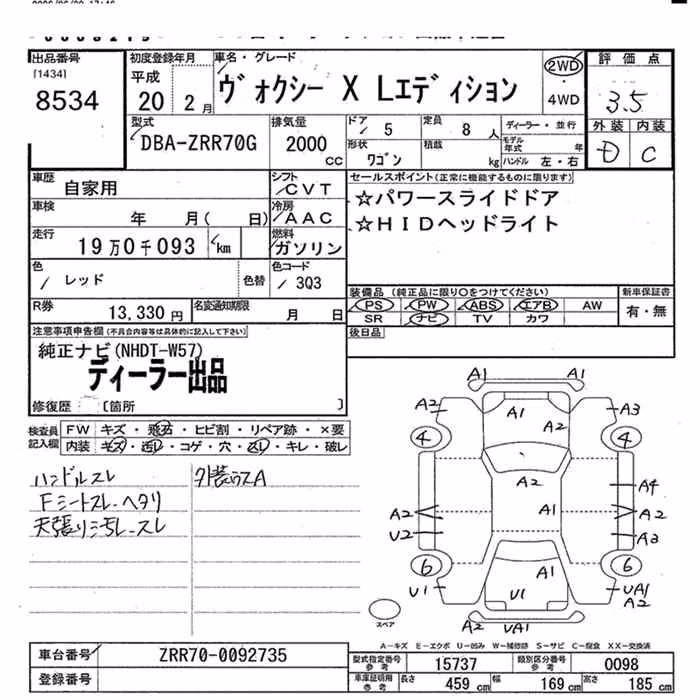 出品番号
[1434]
8534
初度登録年月
平成
20年 2月
車名・グレード
ヴォクシー X Lエディション
2WD
4WD
評価点
3.5
外装 内装
D C
型式
DBA-ZRR70G
排気量
2000
CC
ドア 5
定員 8人
形状 ワゴン
積載 kg
ディーラー・並行
モデル年式 年
ハンドル 左・右
車歴 自家用
シフト CVT
車検 年 月( 日)
冷房 AAC
走行 19万0千093 km
燃料 ガソリン
色 レッド 色替
色コード 3Q3
R券 13,330円
名変通知期限 月 日
セールスポイント(正常に機能するものに限ります)
☆パワースライドドア
☆HIDヘッドライト
装備品(純正品に限り○をつけてください)
PS PW ABS エアB AW
SR ナビ TV カワ
新車保証書
有・無
後日品
注意事項申告欄(不具合内容等は具体的に記入して下さい)
純正ナビ(NHDT-W57)
ディーラー出品
修復歴 [箇所 ]
検査員記入欄
FW キズ・飛石・ヒビ割・リペア跡・×要
内装 キズ・汚レ・コゲ・穴・スレ・キレ・破レ
ハンドルスレ
外装ウスA
Fシートスレ・ヘタリ
天張り汚レ・スレ
A1 A1
A2 A2 A3
4 4
A2
A4
A2 A1 A2
U2 A3
6 6
A1
U1 U1 UA1
A2
A2 UA1
スペア
A-キズ E-エクボ U-凹み W-補修跡 S-サビ C-腐食 XX-交換済
車台番号 ZRR70-0092735
登録番号
型式指定番号参考 15737
類別区分番号参考 0098
車庫証明用参考
長さ 459cm
幅 169cm
高さ 185cm